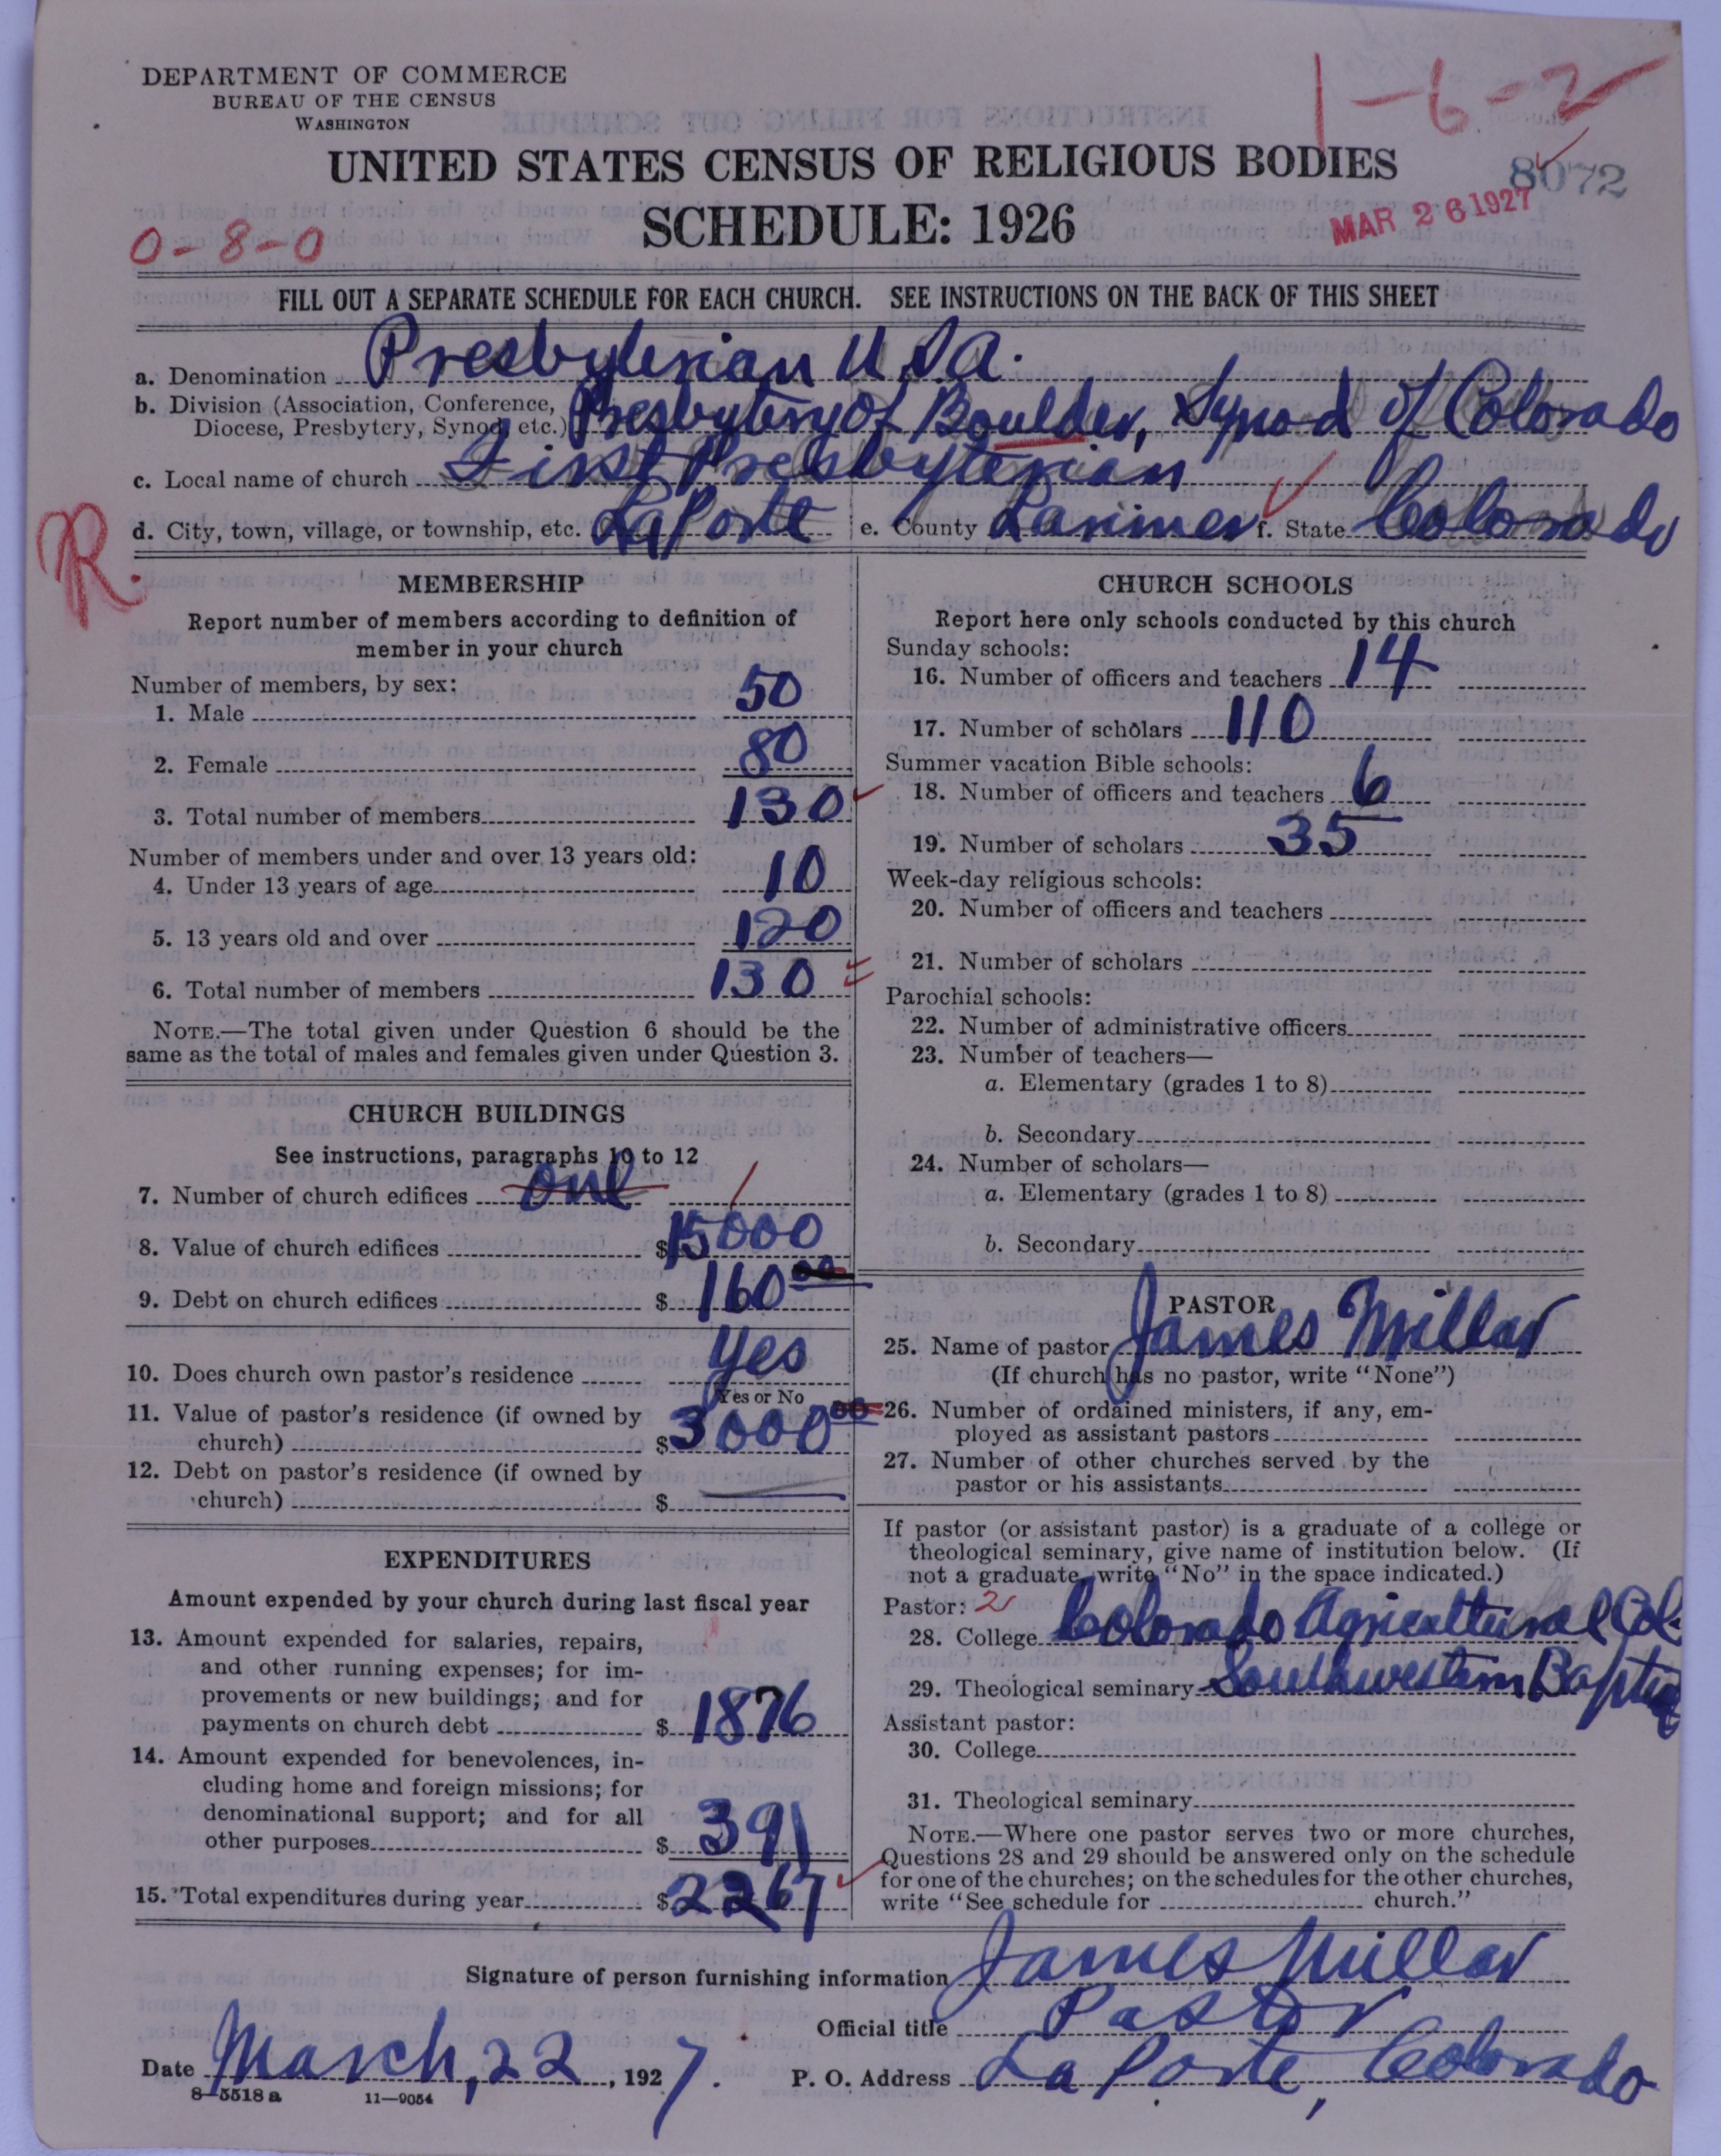 DEPARTMENT OF COMMERCE
BUREAU OF THE CENSUS
WASHINGTON
1-6-2
UNITED STATES CENSUS OF RELIGIOUS BODIES
8072
SCHEDULE: 1926
MAR 26 1927
0-8-0
FILL OUT A SEPARATE SCHEDULE FOR EACH CHURCH. SEE INSTRUCTIONS ON THE BACK OF THIS SHEET
a. Denomination Presbyterian U S A.
b. Division (Association, Conference, Diocese, Presbytery, Synod, etc.) Presbytery of Boulder, Synod of Colorado
c. Local name of church First Presbyterian
d. City, town, village, or township, etc. LaPorte e. County Larimer f. State Colorado
R.
MEMBERSHIP
Report number of members according to definition of
member in your church
Number of members, by sex:
1. Male 50
2. Female 80
3. Total number of members 130
Number of members under and over 13 years old:
4. Under 13 years of age 10
5. 13 years old and over 120
6. Total number of members 130
NOTE.—The total given under Question 6 should be the
same as the total of males and females given under Question 3.
CHURCH BUILDINGS
See instructions, paragraphs 10 to 12
7. Number of church edifices one 1
8. Value of church edifices $15000
9. Debt on church edifices $160 00
10. Does church own pastor's residence yes
Yes or No
11. Value of pastor's residence (if owned by
church) $3000 00
12. Debt on pastor's residence (if owned by
church) $
EXPENDITURES
Amount expended by your church during last fiscal year
13. Amount expended for salaries, repairs,
and other running expenses; for im-
provements or new buildings; and for
payments on church debt $1876
14. Amount expended for benevolences, in-
cluding home and foreign missions; for
denominational support; and for all
other purposes $391
15. Total expenditures during year $2267
CHURCH SCHOOLS
Report here only schools conducted by this church
Sunday schools:
16. Number of officers and teachers 14
17. Number of scholars 110
Summer vacation Bible schools:
18. Number of officers and teachers 6
19. Number of scholars 35
Week-day religious schools:
20. Number of officers and teachers
21. Number of scholars
Parochial schools:
22. Number of administrative officers
23. Number of teachers—
a. Elementary (grades 1 to 8)
b. Secondary
24. Number of scholars—
a. Elementary (grades 1 to 8)
b. Secondary
PASTOR
25. Name of pastor James Millar
(If church has no pastor, write "None")
26. Number of ordained ministers, if any, em-
ployed as assistant pastors
27. Number of other churches served by the
pastor or his assistants
If pastor (or assistant pastor) is a graduate of a college or
theological seminary, give name of institution below. (If
not a graduate, write "No" in the space indicated.)
Pastor: 2
28. College Colorado Agricultural Col.
29. Theological seminary Southwestern Baptist
Assistant pastor:
30. College
31. Theological seminary
NOTE.—Where one pastor serves two or more churches,
Questions 28 and 29 should be answered only on the schedule
for one of the churches; on the schedules for the other churches,
write "See schedule for church."
Signature of person furnishing information James Millar
Official title Pastor
Date March, 22, 1927. P. O. Address La Porte, Colorado
8—5518 a 11—9054